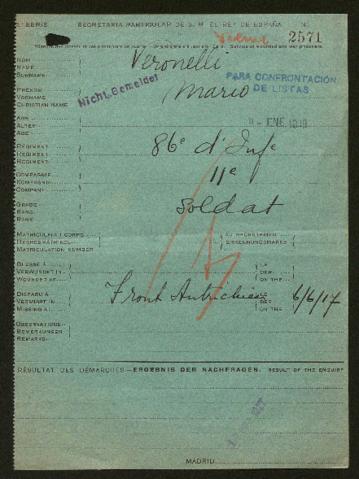 SERIE SECRETARIA PARTICULAR DE S. M. EL REY DE ESPAÑA N.
2571
NOM
NAME
SURNAME
Veronelli
Nicht Gemeldet
PARA CONFRONTACIÓN
DE LISTAS
PRENOM
VORNAME
CHRISTIAN NAME
Mario
AGE
ALTER
AGE
ENE. 1918
REGIMENT
REGIMENT
REGIMENT
86e d'Infe
COMPAGNIE
KOMPANIE
COMPANY
11e
GRADE
RANG
RANK
Soldat
MATRICULE AU CORPS
MATRICULATION NUMBER
AU RECRUTEMENT
ERKENNUNGSMARKE
BLESSÉ À
VERWUNDET IN
WOUNDED AT
LE
DEN
ON THE
DISPARU À
VERMISST IN
MISSING AT
Front Autrichien
LE
DEN
ON THE
6/6/17
OBSERVATIONS
BEMERKUNGEN
REMARKS
RÉSULTAT DES DÉMARCHES—ERGEBNIS DER NACHFRAGEN. RESULT OF THE ENQUIRY
MADRID